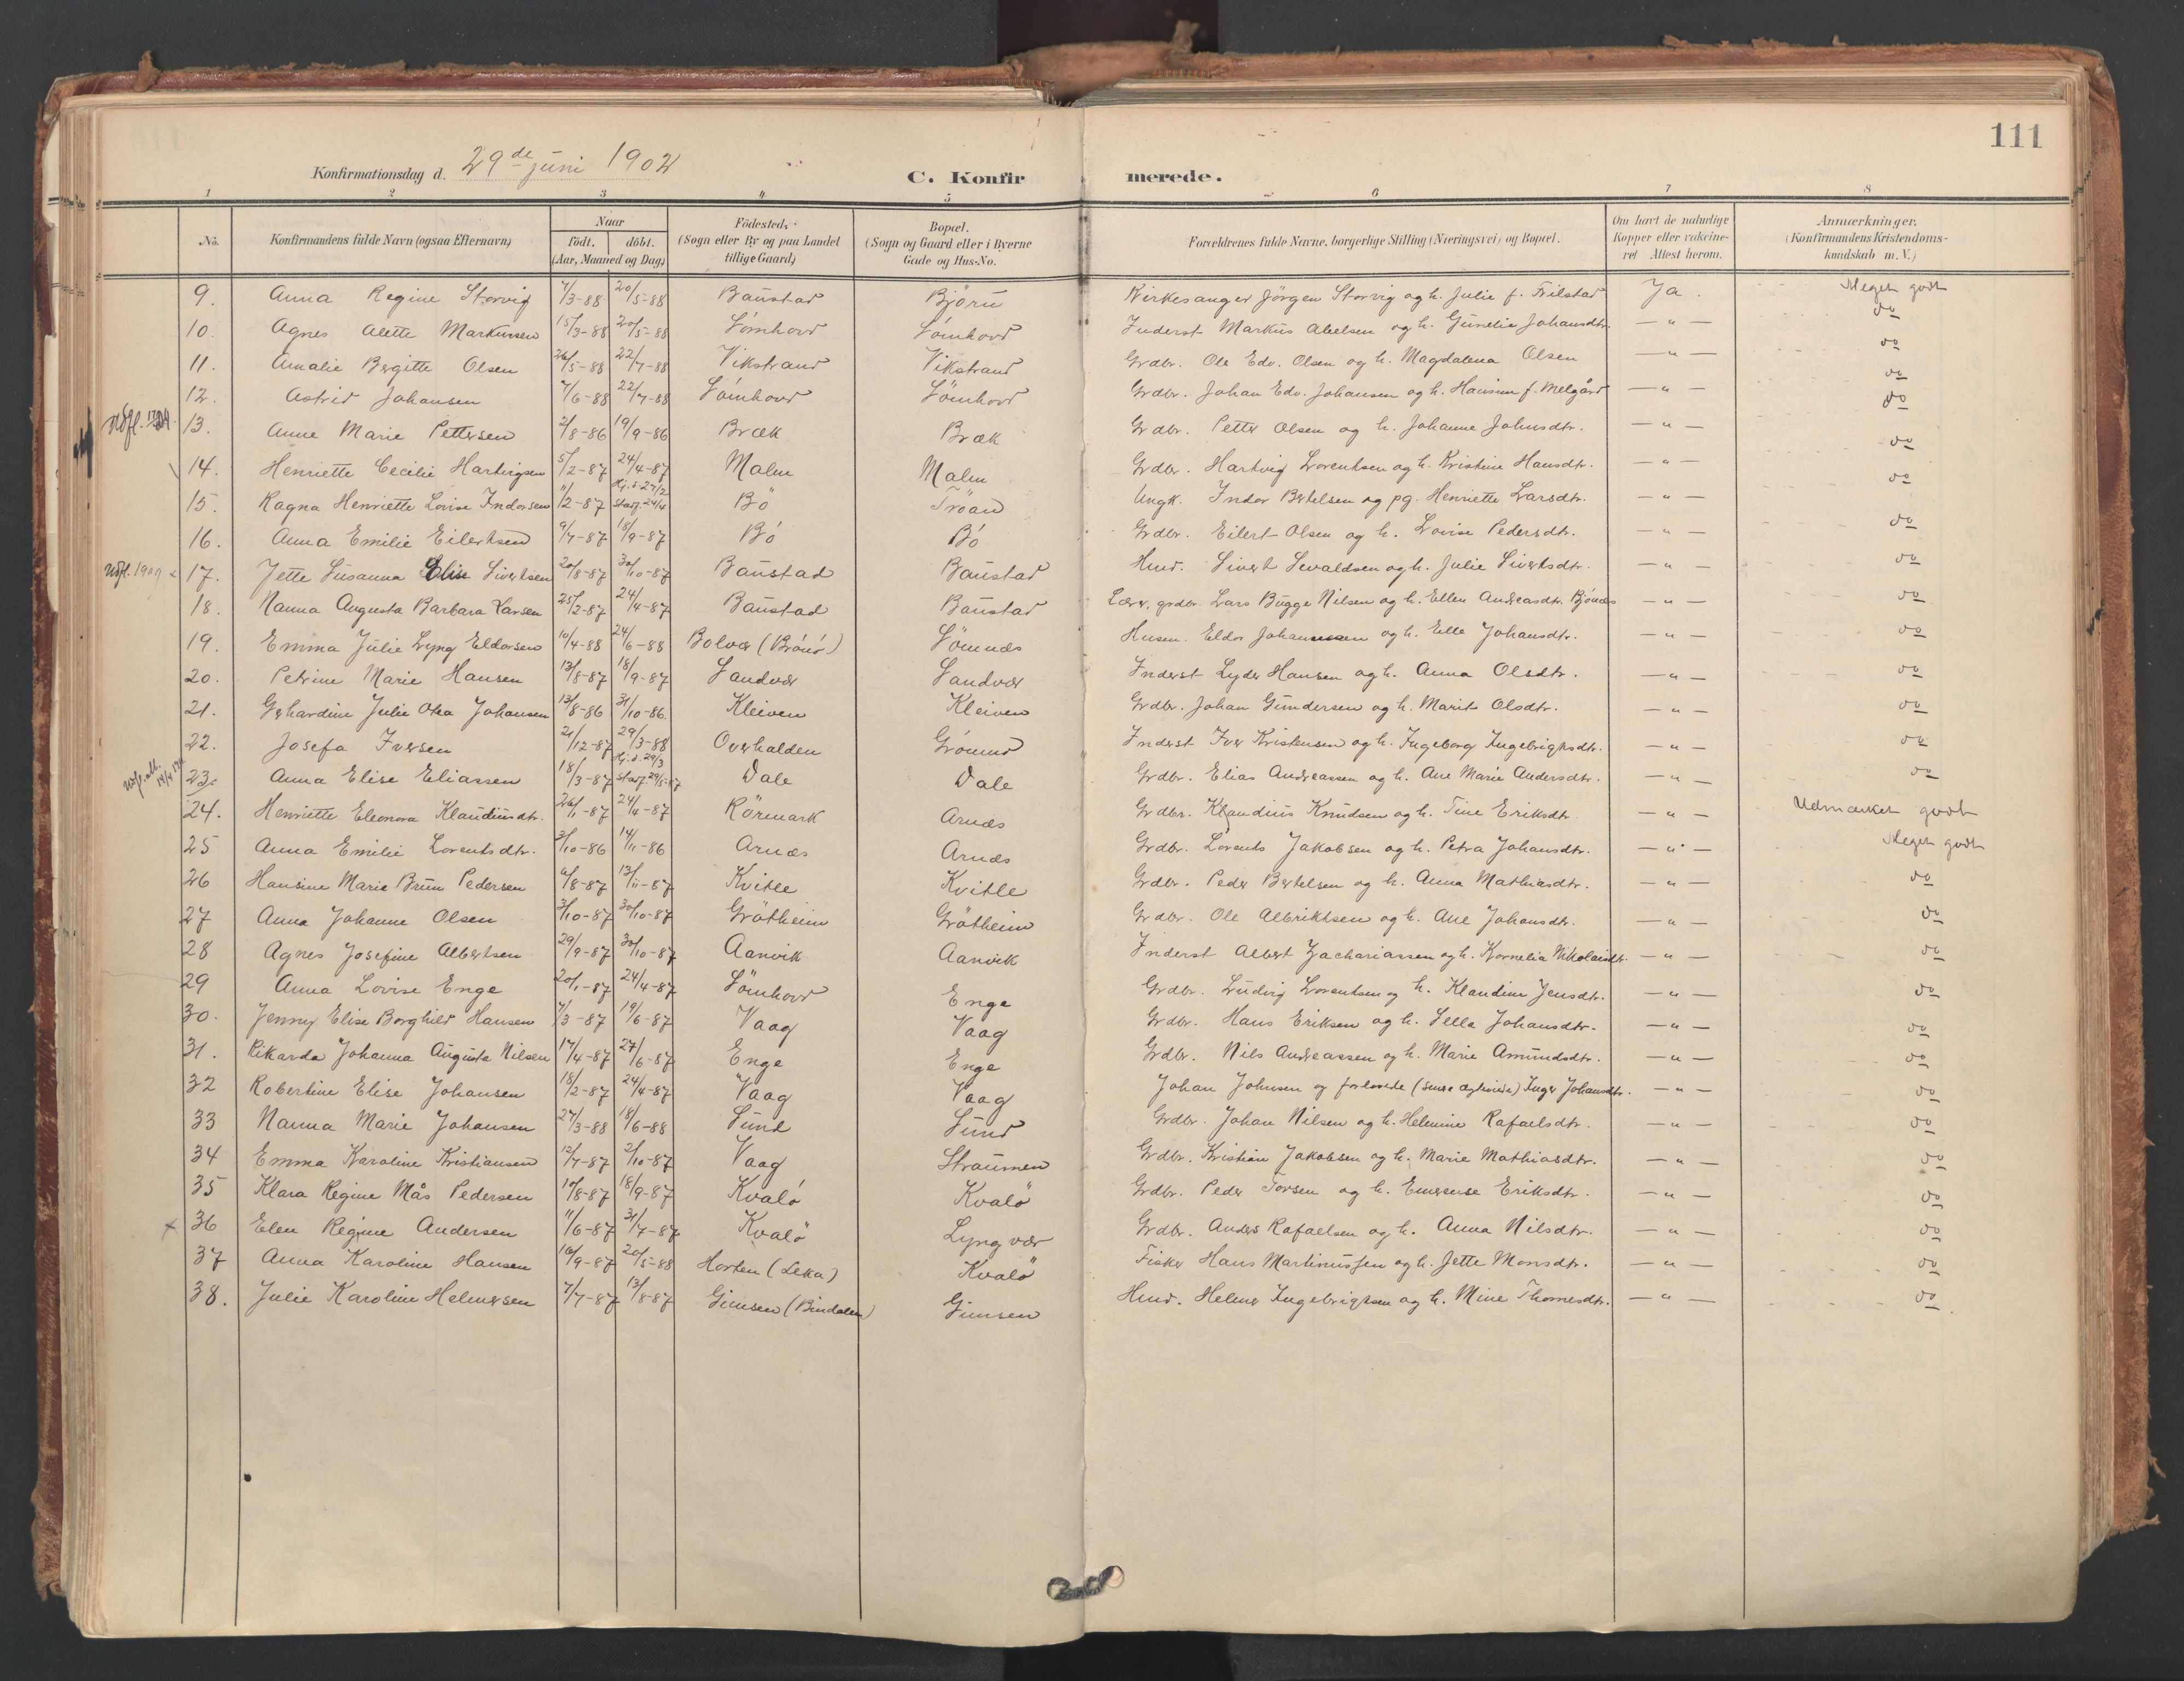 111
Konfirmationsdag d. 29de juni 1902
C. Konfirmerede.
1 2 3 4 5 6 7 8
No. Konfirmandens fulde Navn (ogsaa Efternavn) Naar födt. döbt. (Aar, Maaned og Dag) Födested. (Sogn eller By og paa Landet tillige Gaard) Bopæl. (Sogn og Gaard eller i Byerne Gade og Hus-No. Forældrenes fulde Navne, borgerlige Stilling (Næringsvei) og Bopæl. Om havt de naturlige Kopper eller vakcineret Attest herom. Anmærkninger. (Konfirmandens Kristendomskundskab m. V.)
9. Anna Regine Storvig 7/3-88 20/5-88 Baustad Björu Kirkesanger Jörgen Storvig og h. Julie f. Trilstad Ja. Meget godt
10. Agnes Alette Markussen 15/3-88 20/5-88 Sömhovd Sömhovd Inderst Markus Abelsen og h. Gunelie Johansdtr. — " — do
11. Amalie Bergitte Olsen 26/5-88 22/7-88 Vikstrand Vikstrand Grdbr. Ole Edv. Olsen og h. Magdalena Olsen — " — do
12. Astrid Johansen 7/6-88 22/7-88 Sömhovd Sömhovd Grdbr. Johan Edv. Johansen og h. Hansine f. Melgård — " — do
13. Anne Marie Pettersen 2/8-86 19/9-86 Bræk Bræk Grdbr. Petter Olsen og h. Johanne Johnsdtr. — " — do
14. Henriette Cecilie Hartvigsen 5/2-87 24/4-87 Malm Malm Grdbr. Hartvig Lorentsen og h. Kristine Hansdtr. — " — do
15. Ragna Henriette Lovise Indorsen 11/2-87 Hj.d. 27/2 Stadf. 24/4 Bö Tröan Ungk. Indor Bertelsen og pg. Henriette Larsdtr. — " — do
16. Anna Emilie Eilertsen 9/7-87 18/9-87 Bö Bö Grdbr. Eilert Olsen og h. Lovise Pedersdtr. — " — do
Udfl. 1909 17. Jette Susanna Elise Sivertsen 20/8-87 30/10-87 Baustad Baustad Hmd. Sivert Sevaldsen og h. Julie Sivertsdtr. — " — do
18. Nanna Augusta Barbara Larsen 25/2-87 24/4-87 Baustad Baustad Lærer, grdbr. Lars Bugge Nilsen og h. Ellen Andreasdtr. Björnes — " — do
19. Emma Julie Lyng Eldorsen 10/4-88 24/6-88 Bolvær (Brönö) Sömnæs Husm. Eldor Johannessen og h. Elle Johansdtr. — " — do
20. Petrine Marie Hansen 13/8-87 18/9-87 Sandvær Sandvær Inderst Lyder Hansen og h. Anna Olsdtr. — " — do
21. Gerhardine Julie Otea Johansen 13/8-86 31/10-86. Kleiven Kleiven Grdbr. Johan Gundersen og h. Marit Olsdtr. — " — do
22. Josefa Iversen 21/12-87 29/3-88 Overhalden Grömmo Inderst Iver Kristensen og h. Ingeborg Ingebrigtsdtr. — " — do
23. Anna Elise Eliassen 18/3-87 Hj.d. 29/3 Stadf. 29/5-87 Dale Dale Grdbr. Elias Andreassen og h. Ane Marie Andersdtr. — " — do
24. Henriette Eleonora Klaudiusdtr. 26/1-87 24/4-87 Rörmark Arnæs Grdbr. Klaudius Knudsen og h. Tine Eriksdtr. — " — Udmærket godt
25 Anna Emilie Lorentsdtr. 3/10-86 14/11-86 Arnæs Arnæs Grdbr. Lorents Jakobsen og h. Petra Johansdtr. — " — Meget godt
26 Hansine Marie Brun Pedersen 6/8-87 13/11-87 Kvitle Kvitle Grdbr. Peder Bertelsen og h. Anna Mathiasdtr. — " — do
27 Anna Johanne Olsen 3/10-87 30/10-87 Grötheim Grötheim Grdbr. Ole Albriktsen og h. Ane Johansdtr. — " — do
28 Agnes Josefine Albertsen 29/9-87 30/10-87 Aanvik Aanvik Inderst Albert Zachariassen og h. Kornelia Nikolaisdtr. — " — do
29 Anna Lovise Enge 20/1-87 24/4-87 Sömhovd Enge Grdbr. Ludvig Lorentsen og h. Klaudine Jensdtr. — " — do
30. Jenny Elise Borghild Hansen 7/3-87 19/6-87 Vaag Vaag Grdbr. Hans Eriksen og h. Sella Johansdtr. — " — do
31. Rikarda Johanna Augusta Nilsen 17/4-87 27/6-87 Enge Enge Grdbr. Nils Andreassen og h. Marie Amundsdtr. — " — do
32 Robertine Elise Johansen 18/2-87 24/4-87 Vaag Vaag Johan Johnsen og forlovede (senere ægtevied) Inger Johansdtr. — " — do
33 Nanna Marie Johansen 27/3-88 18/6-88 Sund Sund Grdbr. Johan Nilsen og h. Helmine Rafaelsdtr. — " — do
34 Emma Karoline Kristiansen 12/7-87 2/10-87 Vaag Straumen Grdbr. Kristian Jakobsen og h. Marie Mathiasdtr. — " — do
35 Klara Regine Mås Pedersen 10/8-87 18/9-87 Kvalö Kvalö Grdbr. Peder Torsen og h. Emerense Eriksdtr. — " — do
x 36 Elen Regine Andersen 11/6-87 31/7-87 Kvalö Lyngvær Grdbr. Anders Rafaelsen og h. Anna Nilsdtr. — " — do
37 Anna Karoline Hansen 16/9-87 20/5-88 Horten (Leka) Kvalö Fisker Hans Martinussen og h. Jette Monsdtr. — " — do
38. Julie Karoline Helmersen 7/7-87 13/8-87 Gimsen (Bindalen) Gimsen Hmd. Helmer Ingebrigtsen og h. Mine Thomesdtr. — " — do